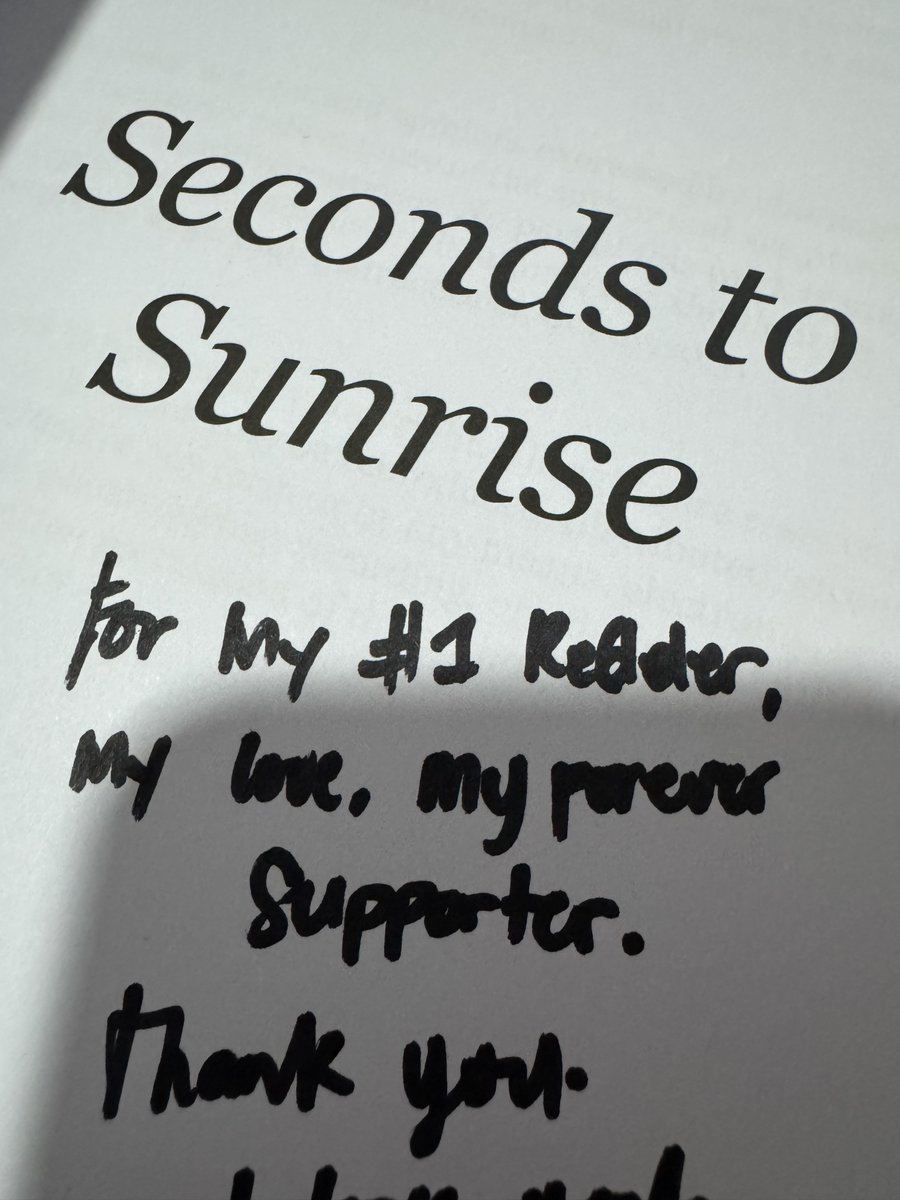 Seconds to
Sunrise
For My #1 Reader,
My love, My forever
Supporter.
Thank you.